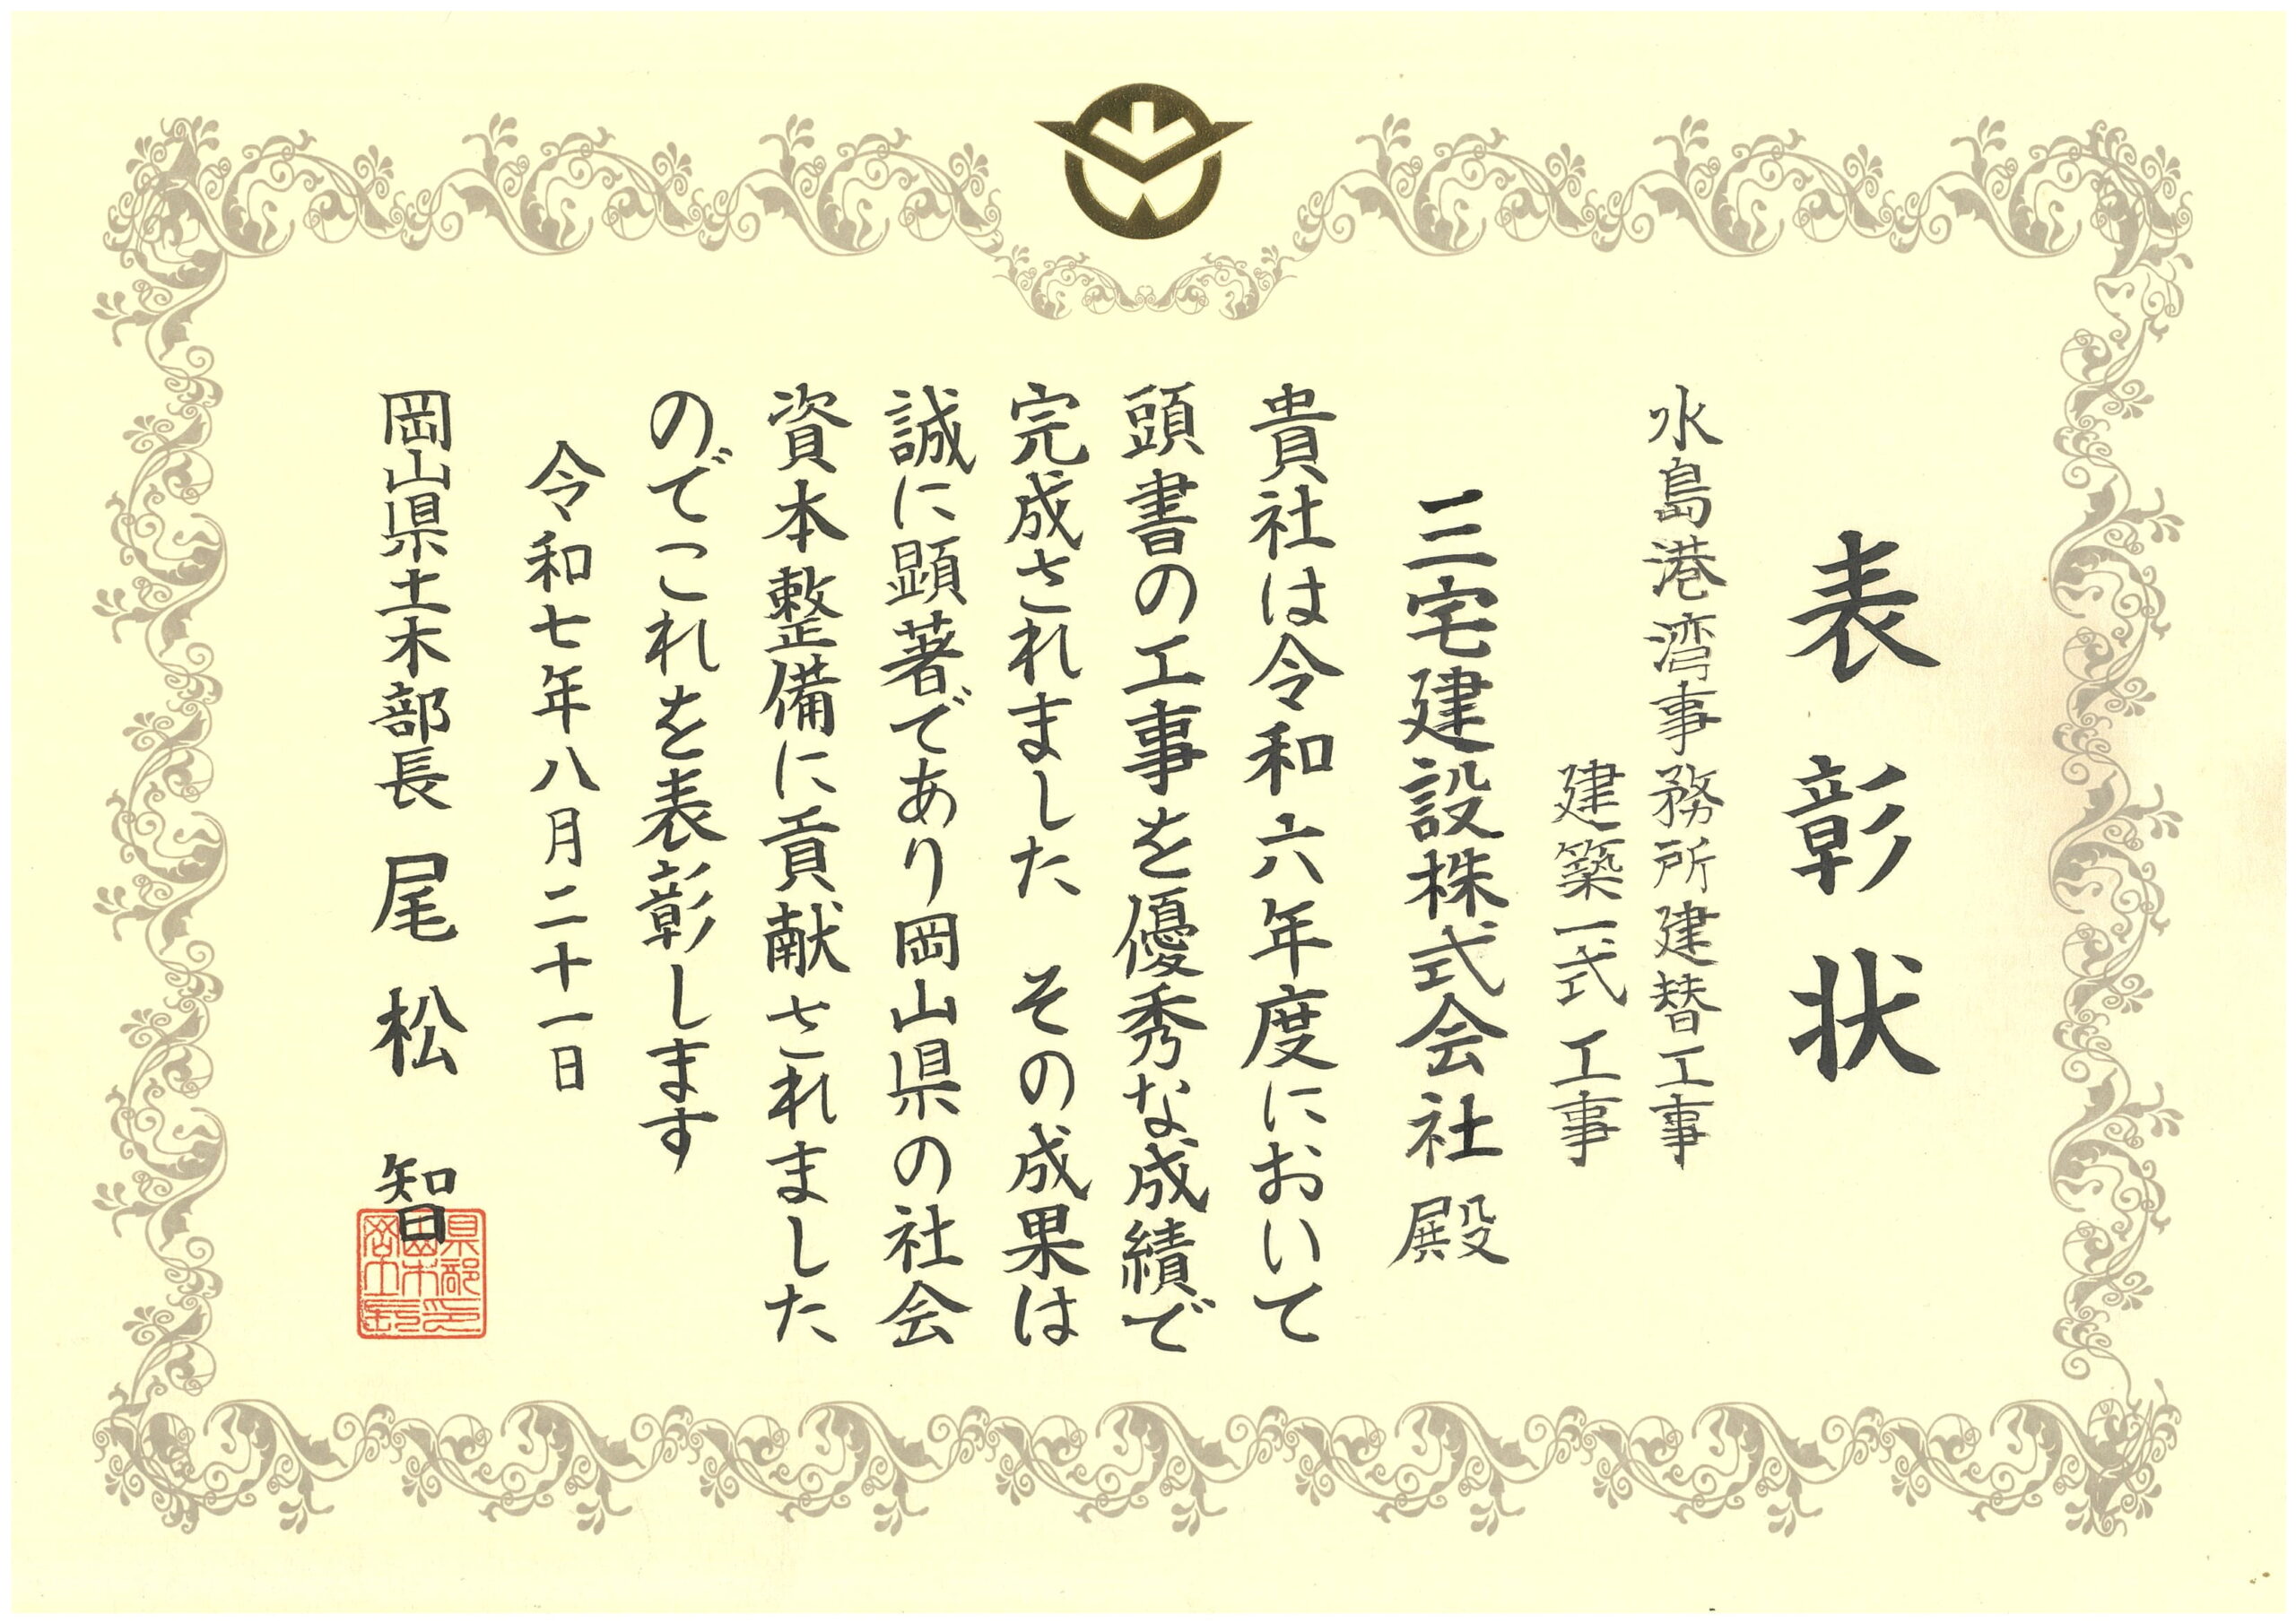 表彰状
水島港湾事務所建替工事
建築一式工事
三宅建設株式会社 殿
貴社は令和六年度において
頭書の工事を優秀な成績で
完成されました その成果は
誠に顕著であり岡山県の社会
資本整備に貢献されました
のでこれを表彰します
令和七年八月二十一日
岡山県土木部長 尾松 智